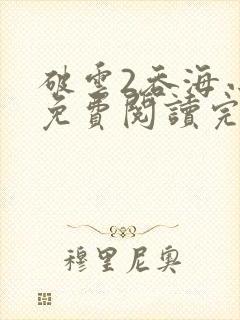 破雲2吞海
免費閱讀完
穆里尼奧